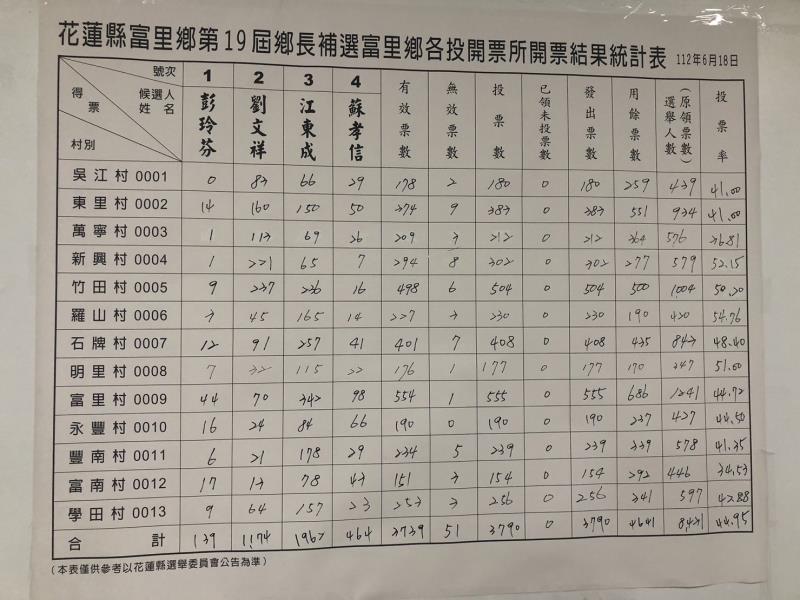 花蓮縣富里鄉第19屆鄉長補選富里鄉各投開票所開票結果統計表 112年6月18日
號次 1 2 3 4 有效票數 無效票數 投票數 已領未投票數 發出票數 用餘票數 選舉人數(原領票數) 投票率
得票 候選人姓名 彭玲芬 劉文祥 江東成 蘇孝信
村別
吳江村 0001 0 83 66 29 178 2 180 0 180 259 439 41.00
東里村 0002 14 160 150 50 374 9 383 0 383 551 934 41.00
萬寧村 0003 1 113 69 26 209 3 212 0 212 364 576 36.81
新興村 0004 1 221 65 7 294 8 302 0 302 277 579 52.15
竹田村 0005 9 237 236 16 498 6 504 0 504 500 1004 50.20
羅山村 0006 3 45 165 14 227 3 230 0 230 190 420 54.76
石牌村 0007 12 91 257 41 401 7 408 0 408 435 843 48.40
明里村 0008 7 32 115 22 176 1 177 0 177 170 347 51.00
富里村 0009 44 70 342 98 554 1 555 0 555 686 1241 44.72
永豐村 0010 16 24 84 66 190 0 190 0 190 237 427 44.50
豐南村 0011 6 21 178 29 234 5 239 0 239 339 578 41.35
富南村 0012 17 13 78 43 151 3 154 0 154 292 446 34.53
學田村 0013 9 64 157 23 253 3 256 0 256 341 597 42.88
合計 139 1174 1962 464 3739 51 3790 0 3790 4641 8431 44.95
(本表僅供參考以花蓮縣選舉委員會公告為準)